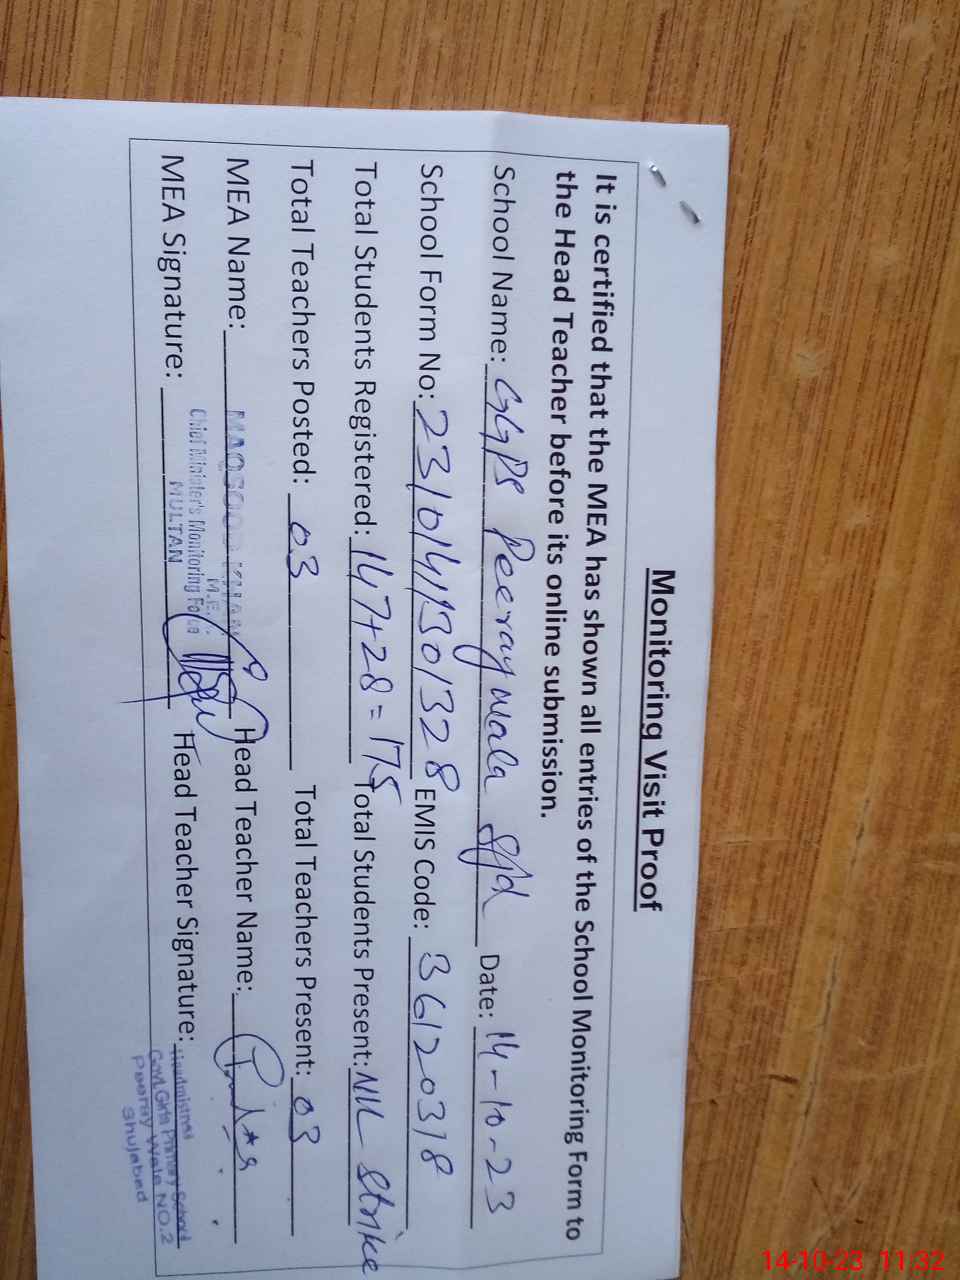 Monitoring Visit Proof
It is certified that the MEA has shown all entries of the School Monitoring Form to
the Head Teacher before its online submission.
School Name: GGPS Peeray wala Sjd Date: 14-10-23
School Form No: 23/014/130/328 EMIS Code: 36120318
Total Students Registered: 147+28=175 Total Students Present: NIL Strike
Total Teachers Posted: 03 Total Teachers Present: 03
MEA Name: MAQSOOD KHAN Head Teacher Name:
M.E.
Chief Minister's Monitoring Force
MULTAN
MEA Signature: Head Teacher Signature:
Headmistress
Govt. Girls Primary School
Peeray Wala NO.2
Shujabad
14-10-23 11:32